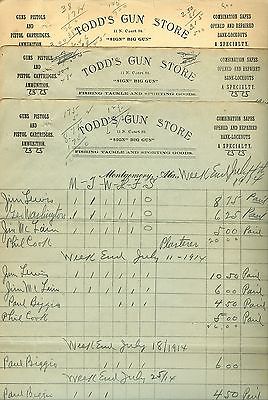 GUNS PISTOLS
AND
PISTOL CARTRIDGES.
AMMUNITION.
TODD'S GUN STORE
11 N. Court St.
"SIGN" BIG GUN"
COMBINATION SAFES
OPENED AND REPAIRED
BANK-LOCKOUTS
A SPECIALTY.
GUNS PISTOLS
AND
PISTOL CARTRIDGES,
AMMUNITION.
TODD'S GUN STORE
11 N. Court St.
"SIGN" BIG GUN"
FISHING TACKLE AND SPORTING GOODS.
COMBINATION SAFES
OPENED AND REPAIRED
BANK-LOCKOUTS
A SPECIALTY.
GUNS PISTOLS
AND
PISTOL CARTRIDGES.
AMMUNITION.
TODD'S GUN STORE
11 N. Court St.
"SIGN" BIG GUN"
FISHING TACKLE AND SPORTING GOODS.
COMBINATION SAFES
OPENED AND REPAIRED
BANK-LOCKOUTS
A SPECIALTY.
Montgomery, Ala. Week End July 4th
1914
M - T W - T F S
Jim Lewis 8 75 Paid
Geo Washington 6 25 Paid
Jim McLain 5 00 Paid
Phil Cook Plasterer
Week End July 11 - 1914
Jim Lewis 10 50 Paid
Jim McLain 6 00 Paid
Paul Biggio 4 50 Paid
Phil Cook 5 00 Paid
Week End July 18/1914
Paul Biggio 6 00
Week End July 25/14
Paul Biggio 4 50 Paid